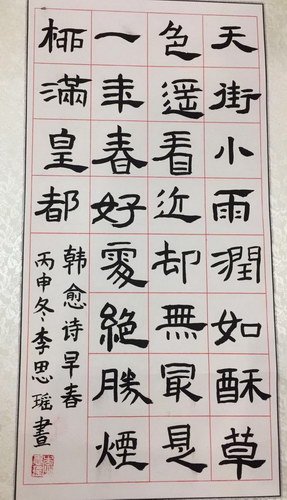 天街小雨潤如酥草
色遥看近却無最是
一年春好處絶勝煙
柳滿皇都
韓愈诗早春
丙申冬李思瑶書